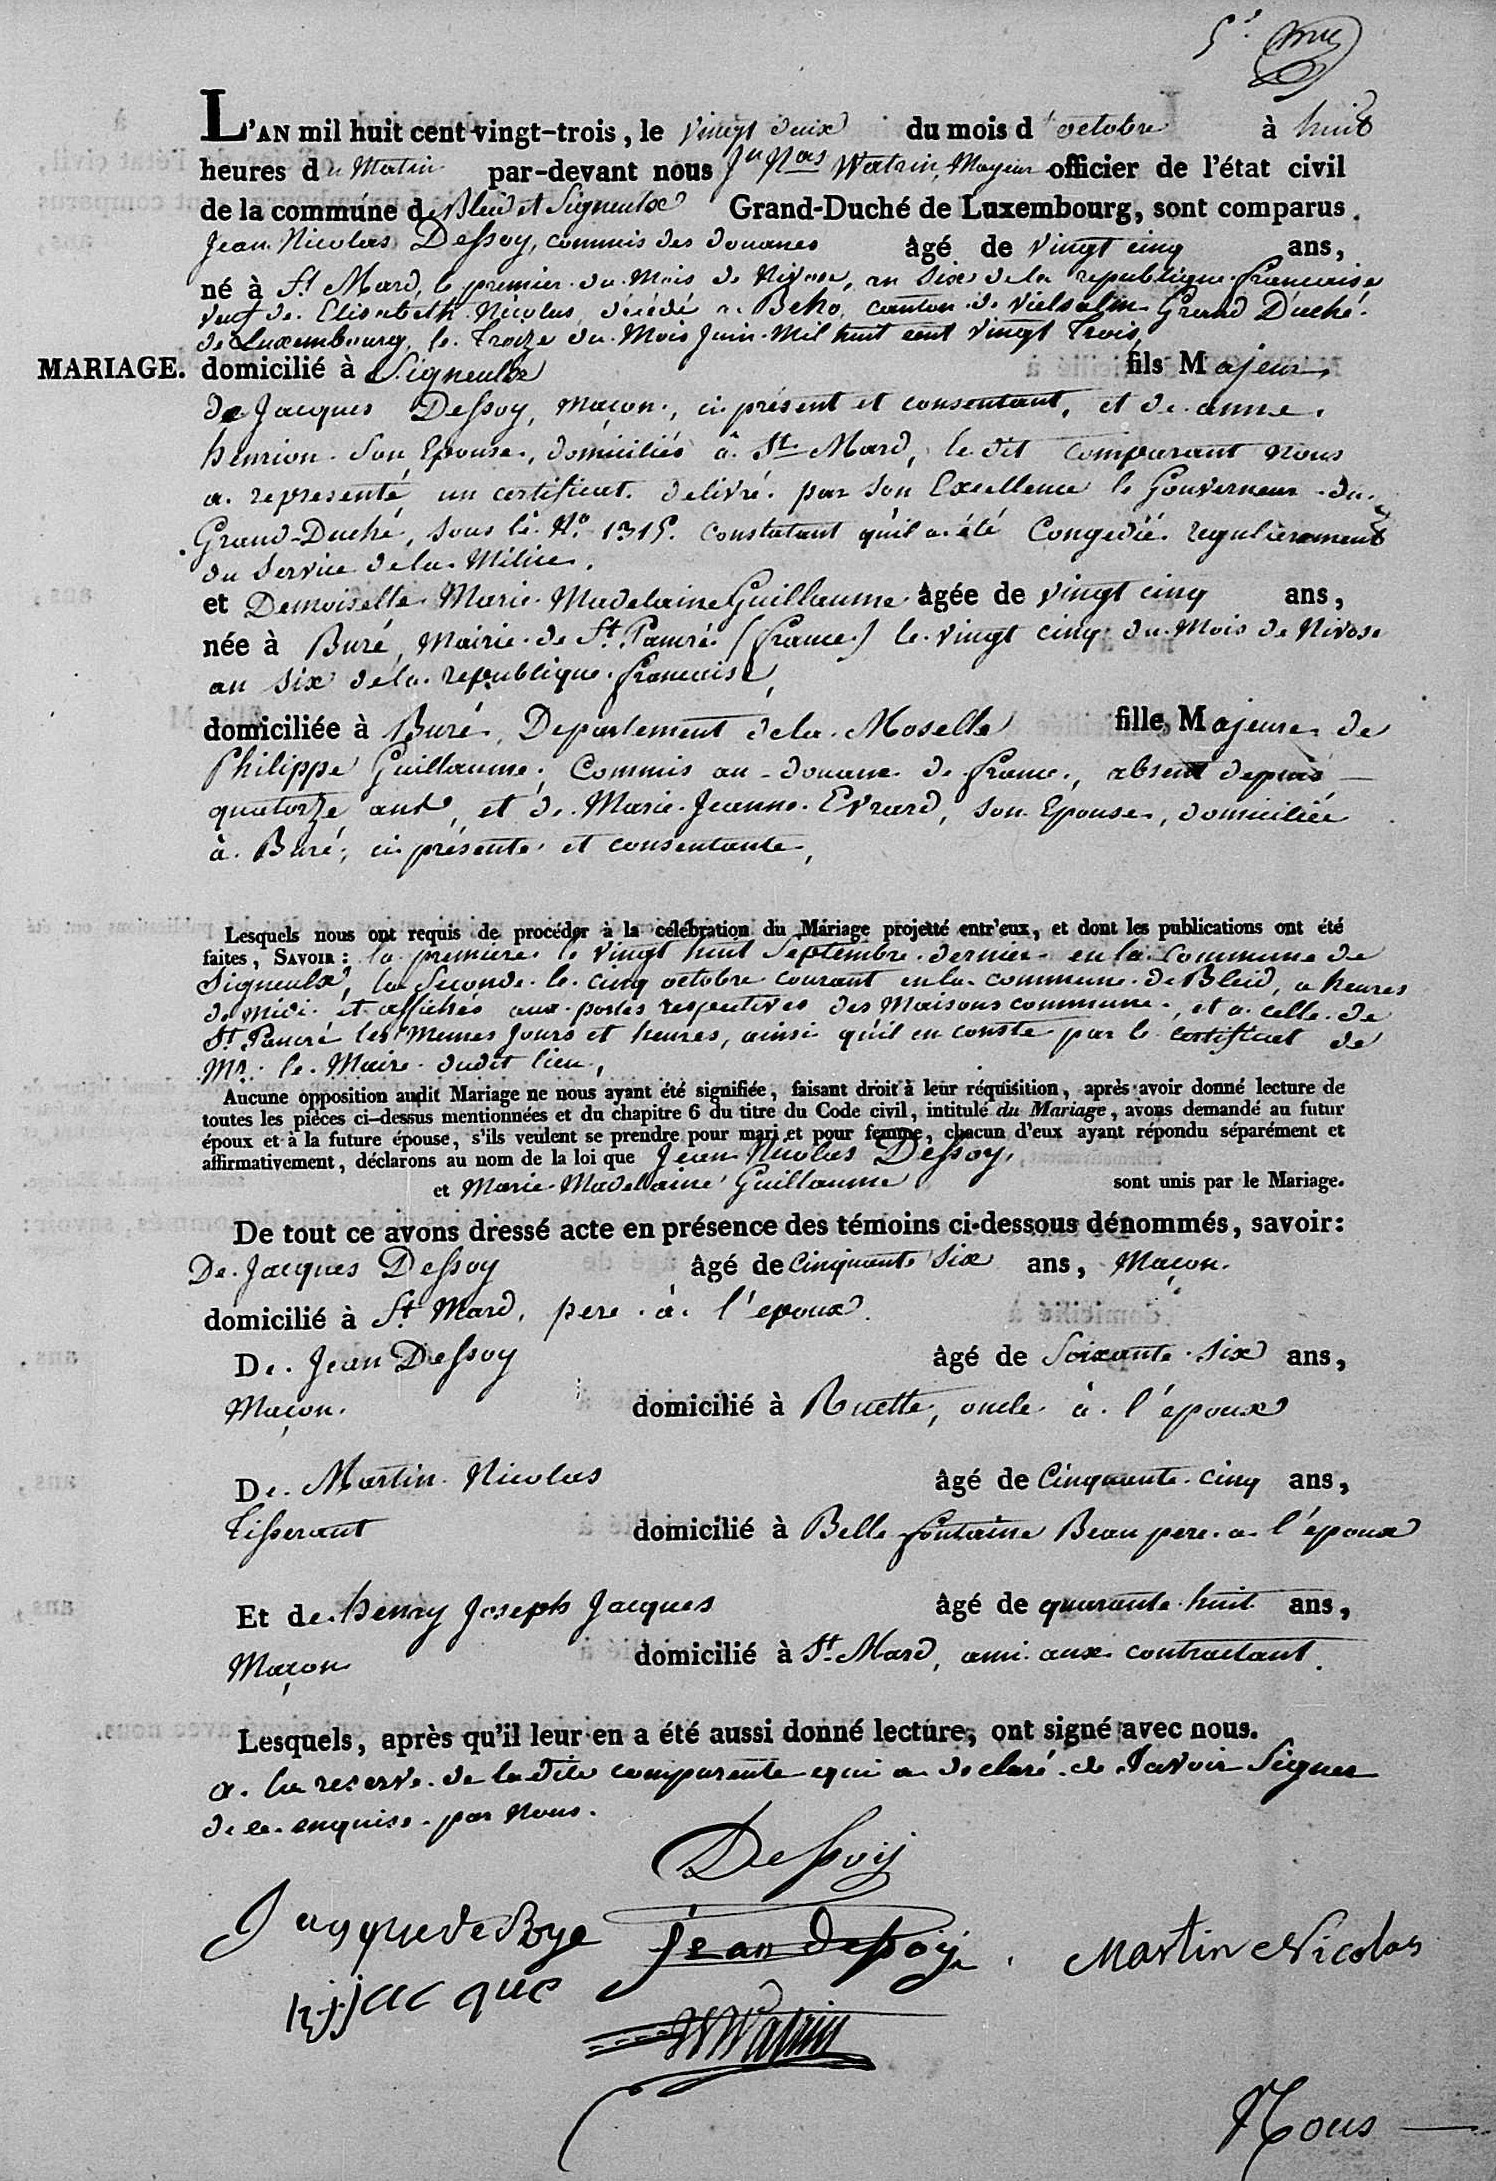 5.e
L'AN mil huit cent vingt-trois, le vingt deux du mois d'octobre à huit
heures du Matin par-devant nous Jn Nas Watrin, Mayeur officier de l'état civil
de la commune de Bleid et Signeulx Grand-Duché de Luxembourg, sont comparus
Jean Nicolas Dessoy, commis des douanes âgé de vingt cinq ans,
né à St. Mard, le premier du Mois de Nivose, an Six de la republique francaise
veuf de Elisabeth Nicolas, décédé a Beho, canton de Vielsalm Grand Duché
de Luxembourg, le Treize du Mois Juin Mil huit cent vingt Trois,
MARIAGE. domicilié à Signeulx fils Majeur,
de Jacques Dessoy, maçon, ci présent et consentant, et de anne
henrion Son Epouse, domiciliés à St. Mard, le dit comparant nous
a representé un certificat delivré par Son Excellence le Gouverneur du
Grand-Duché, sous le No. 1315. constatant qu'il a été Congedié regulièrement
du Service de la Milice,
et Demoiselle Marie Madelaine Guillaume âgée de vingt cinq ans,
née à Buré, Mairie de St. Pancré (france) le vingt cinq du Mois de Nivose
an six de la republique francaise,
domiciliée à Buré, Departement de la Moselle fille Majeure de
Philippe Guillaume, Commis au douane de france, absent depuis
quatorze ans, et de Marie Jeanne Evrard, son Epouse, domiciliée
à Buré, ci présente et consentante,
Lesquels nous ont requis de procéder à la célébration du Mariage projetté entr'eux, et dont les publications ont été
faites, SAVOIR: la premiere le vingt huit Septembre dernier en la Commune de
Signeulx, la Seconde le cinq octobre courant en la commune de Bleid, a heures
de midi et affichés aux portes respectives des Maisons commune, et a celle de
St. Pancré les Memes Jours et heures, ainsi qu'il en conste par le certificat de
Mr. le Maire dudit lieu,
Aucune opposition audit Mariage ne nous ayant été signifiée, faisant droit à leur réquisition, après avoir donné lecture de
toutes les pièces ci-dessus mentionnées et du chapitre 6 du titre du Code civil, intitulé du Mariage, avons demandé au futur
époux et à la future épouse, s'ils veulent se prendre pour mari et pour femme, chacun d'eux ayant répondu séparément et
affirmativement, déclarons au nom de la loi que Jean Nicolas Dessoy,
et Marie Madelaine Guillaume sont unis par le Mariage.
De tout ce avons dressé acte en présence des témoins ci-dessous dénommés, savoir:
De Jacques Dessoy âgé de cinquante six ans, Maçon
domicilié à St. Mard, pere à l'epoux
De Jean Dessoy âgé de Soixante Six ans,
Maçon domicilié à Ruette, oncle à l'epoux
De Martin Nicolas âgé de Cinquante cinq ans,
Tisserant domicilié à Belle fontaine Beau pere a l'époux
Et de henry Joseph Jacques âgé de quarante huit ans,
Maçon domicilié à St. Mard, ami aux contractant.
Lesquels, après qu'il leur en a été aussi donné lecture, ont signé avec nous.
a la reserve de la dite comparente qui a declaré ne Savoir Signer
de ce enquise par nous.
Dessoij
Jacque de Soye Jean dessoij Martin Nicolas
hjjacque
Watrin
Nous